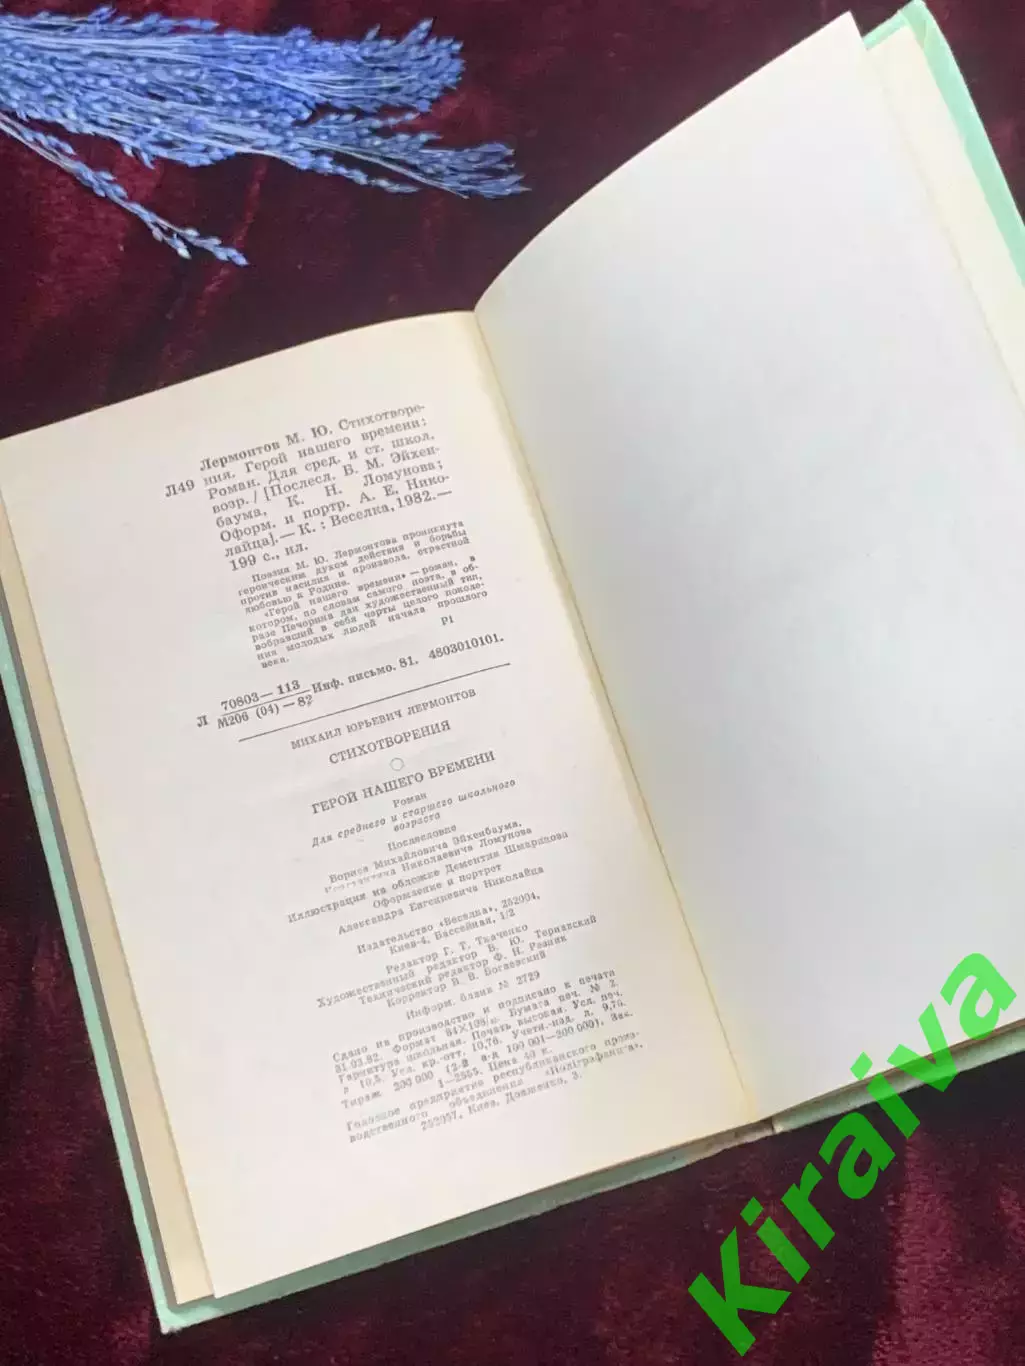 Лермонтов М. Ю. Стихотворе-
Л49 ния. Герой нашего времени:
Роман. Для сред. и ст. школ.
возр. / [Послесл. Б. М. Эйхен-
баума, К. Н. Ломунова;
Оформ. и портр. А. Е. Нико-
лайца].— К. : Веселка, 1982.—
199 с., ил.
Поэзия М. Ю. Лермонтова проникнута
героическим духом действия и борьбы
против насилия и произвола, страстной
любовью к Родине.
«Герой нашего времени» — роман, в
котором, по словам самого поэта, в об-
разе Печорина дан художественный тип,
вобравший в себя черты целого поколе-
ния молодых людей начала прошлого
века.
Р1
Л 70803—113 Инф. письмо. 81. 4803010101.
М206 (04)—82
МИХАИЛ ЮРЬЕВИЧ ЛЕРМОНТОВ
СТИХОТВОРЕНИЯ
ГЕРОЙ НАШЕГО ВРЕМЕНИ
Роман
Для среднего и старшего школьного
возраста
Послесловие
Бориса Михайловича Эйхенбаума,
Константина Николаевича Ломунова
Иллюстрация на обложке Дементия Шмаринова
Оформление и портрет
Александра Евгениевича Николайца
Издательство «Веселка», 252004,
Киев-4, Бассейная, 1/2
Редактор Г. Т. Ткаченко
Художественный редактор В. Ю. Тернавский
Технический редактор Ф. Н. Резник
Корректор В. В. Богаевский
Информ. бланк № 2729
Сдано на производство и подписано к печати
31.03.82. Формат 84×108/ Бумага печ. № 2.
Гарнитура школьная. Печать высокая. Усл. печ.
л 10,5. Усл. кр.-отт. 10,76. Учетн.-изд. л. 9,75.
Тираж 200 000 (2-й з-д 100 001—200 000). Зак.
1—2555. Цена 40 к.
Головное предприятие республиканского произ-
водственного объединения «Полиграфкнига»,
252057, Киев, Довженко, 3.
Kiraiva